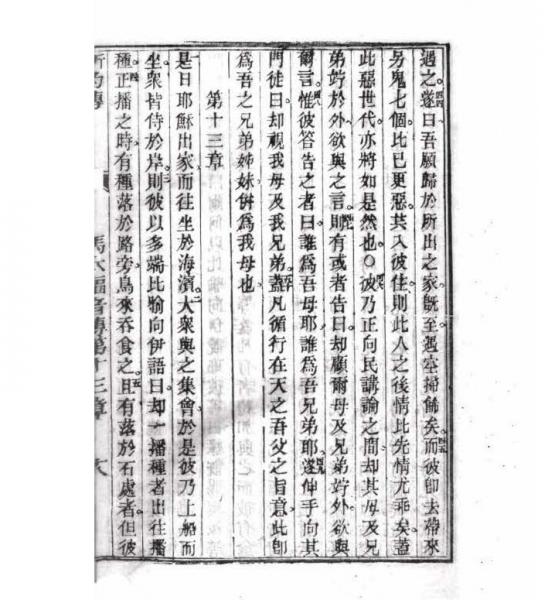 遇之遂曰吾願歸於所出之家既至遇空掃餙矣而彼卽去帶來
另鬼七個比己更惡其入彼住則此人之後情比先情尤乖矣蓋
此惡世代亦將如是然也〇彼乃正向民講論之間却其母及兄
弟竚於外欲與之言則有或者告曰却顧爾母及兄弟竚外欲與
爾言惟彼答告之者曰誰爲吾母耶誰爲吾兄弟耶遂伸手向其
門徒曰却視我母及我兄弟蓋凡循行在天之吾父之旨意此卽
爲吾之兄弟姊妹倂爲我母也
第十三章
是日耶穌出家而往坐於海濱大衆與之集會於是彼乃上船而
坐衆皆侍於岸則彼以多端比喻向伊語曰却一播種者出往播
種正播之時有種落於路旁鳥來吞食之且有落於石處者但彼
馬太福音傳第十三章 六